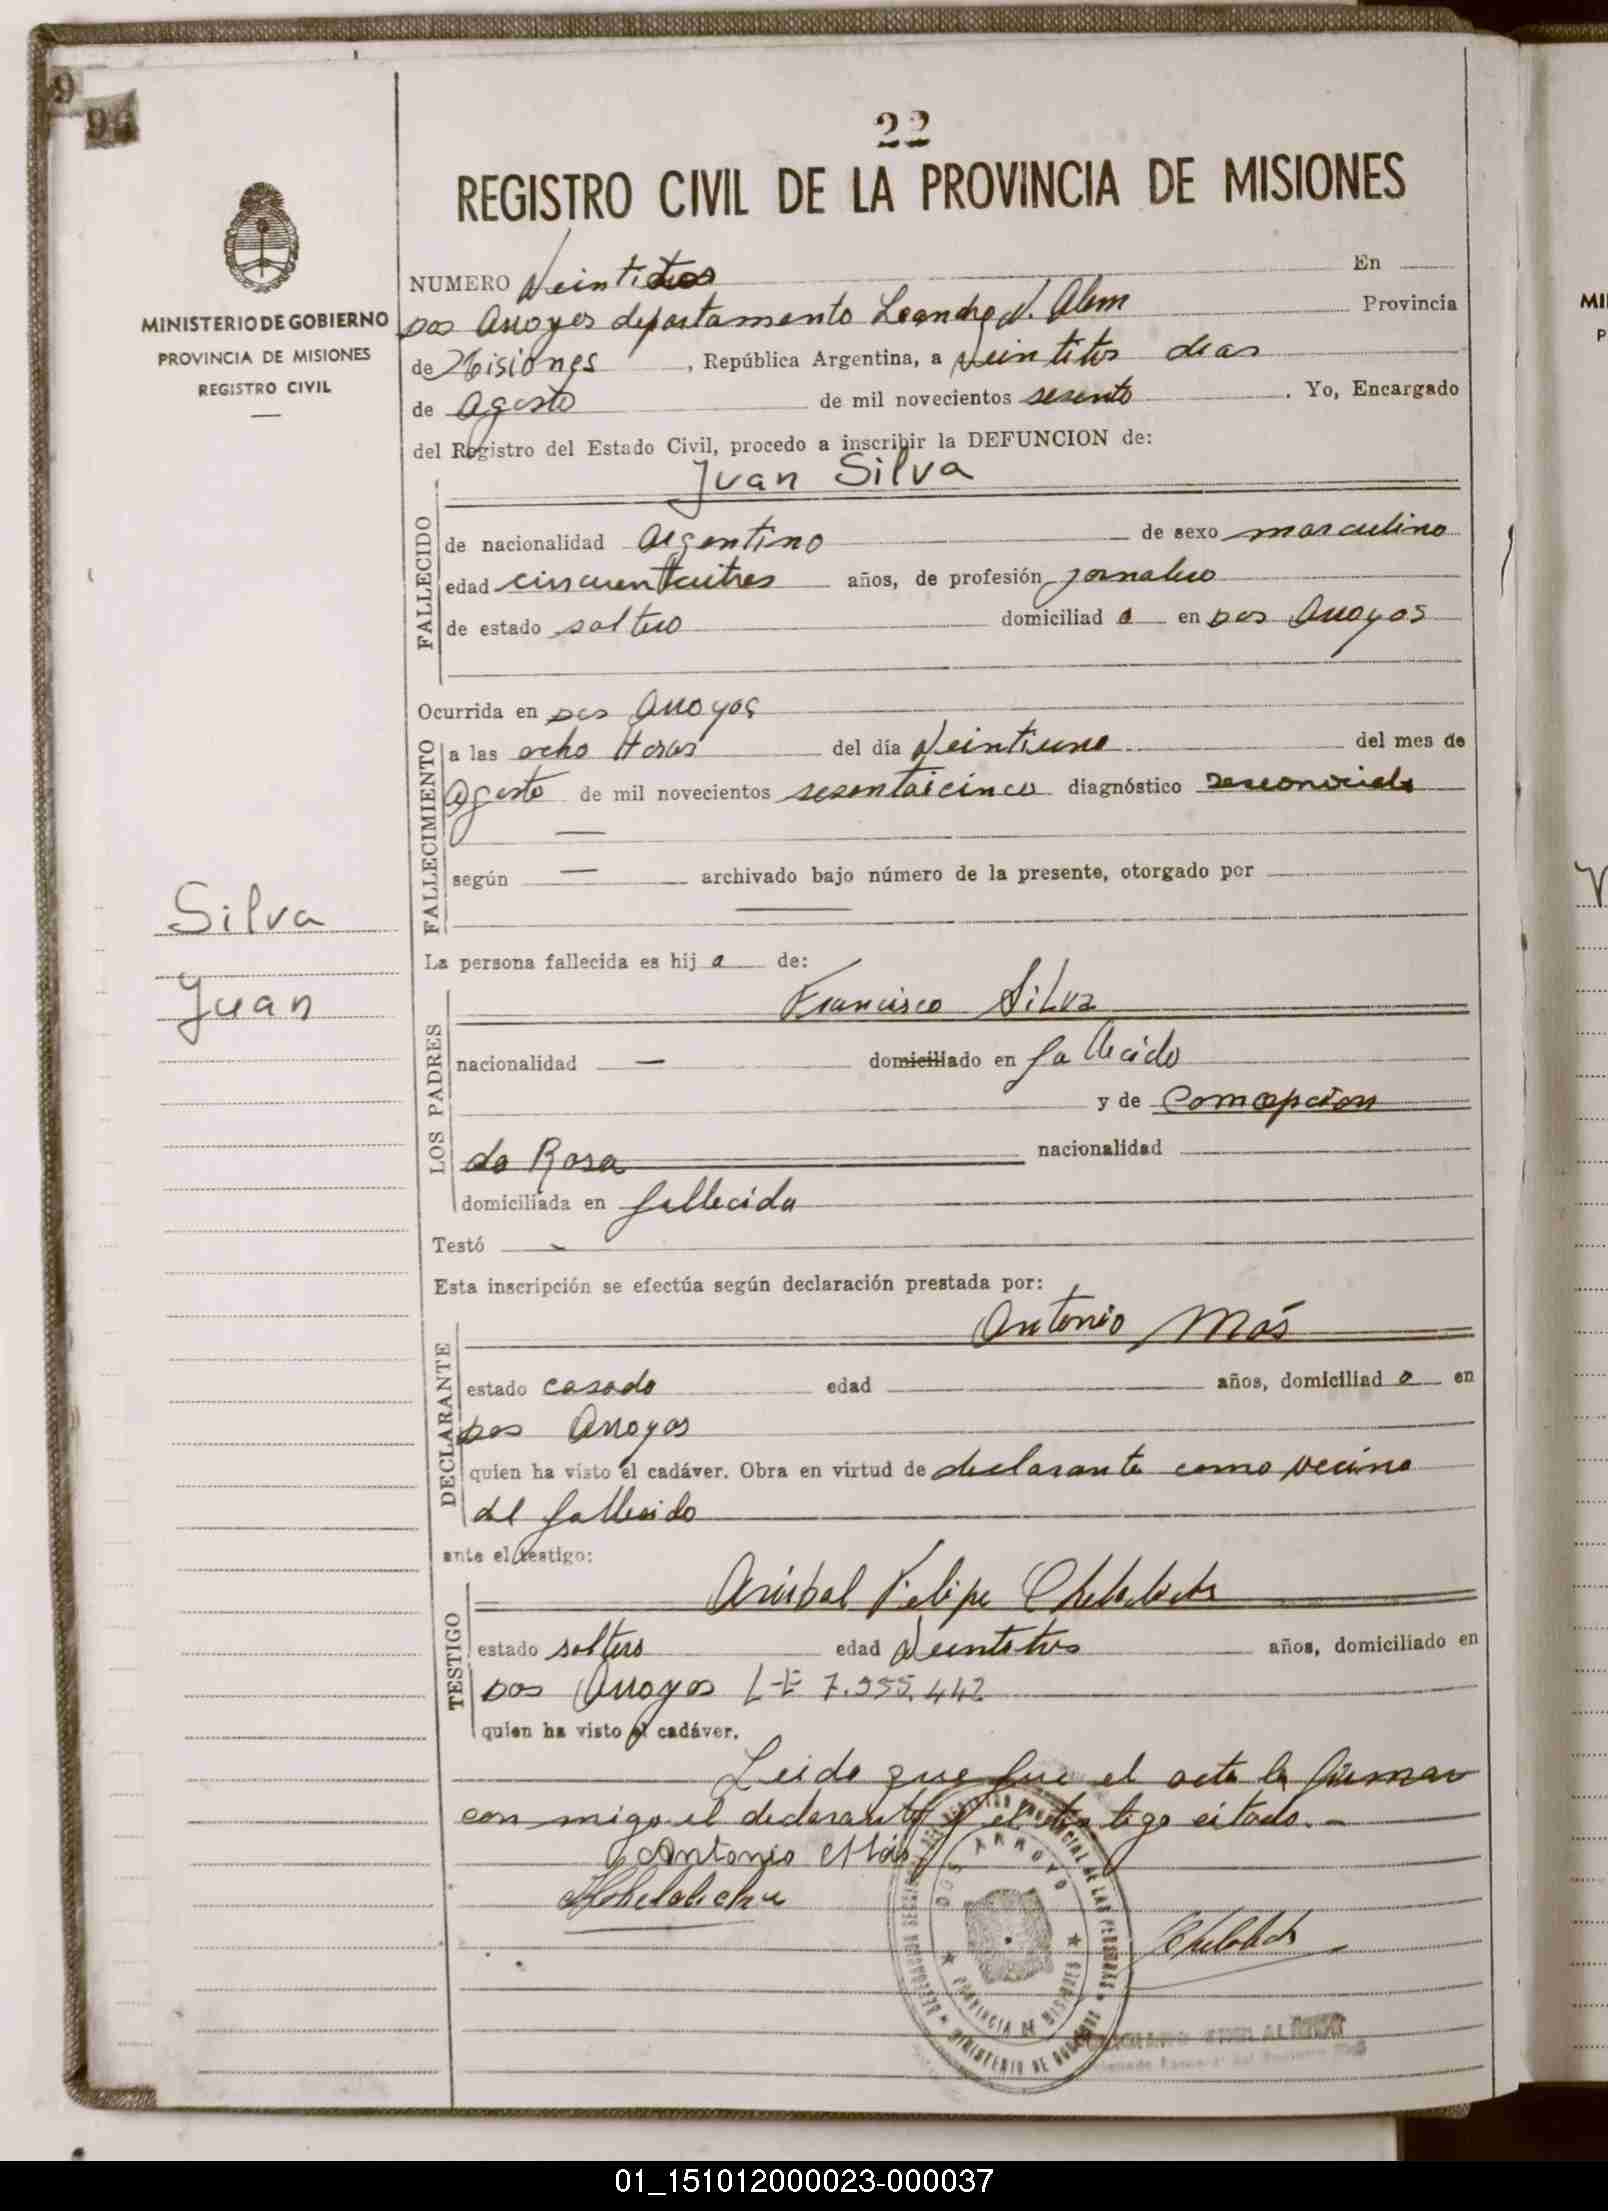 9
22
REGISTRO CIVIL DE LA PROVINCIA DE MISIONES
MINISTERIO DE GOBIERNO
PROVINCIA DE MISIONES
REGISTRO CIVIL
NUMERO Veintidos En
Dos Arroyos departamento Leandro N. Alem Provincia
de Misiones, República Argentina, a Veintitrs dias
de Agosto de mil novecientos sesenta. Yo, Encargado
del Registro del Estado Civil, procedo a inscribir la DEFUNCION de:
Juan Silva
FALLECIDO
de nacionalidad Argentino de sexo masculino
edad cincuentaitres años, de profesión jornalero
de estado soltero domiciliad o en Dos Arroyos
Ocurrida en Dos Arroyos
FALLECIMIENTO
a las ocho Horas del día Veintiuno del mes de
Agosto de mil novecientos sesentaicinco diagnóstico Desconocido
según — archivado bajo número de la presente, otorgado por
Silva
Juan
La persona fallecida es hij o de:
LOS PADRES
Francisco Silva
nacionalidad — domiciliado en fallecido
y de Comcepcion
da Rosa nacionalidad
domiciliada en fallecida
Testó
Esta inscripción se efectúa según declaración prestada por:
DECLARANTE
Antonio Más
estado casado edad años, domiciliad o en
Dos Arroyos
quien ha visto el cadáver. Obra en virtud de declarante como vecino
del fallecido
ante el testigo:
TESTIGO
Anibal Felipe
estado soltero edad Veintitrs años, domiciliado en
Dos Arroyos L-E 7.555.442
quien ha visto el cadáver.
Leida que fue el acta la firman
con migo el declarante y el testigo citado.-
Antonio Más
DOS ARROYOS
PROVINCIA DE MISIONES
MINISTERIO DE GOBIERNO
01_151012000023-000037